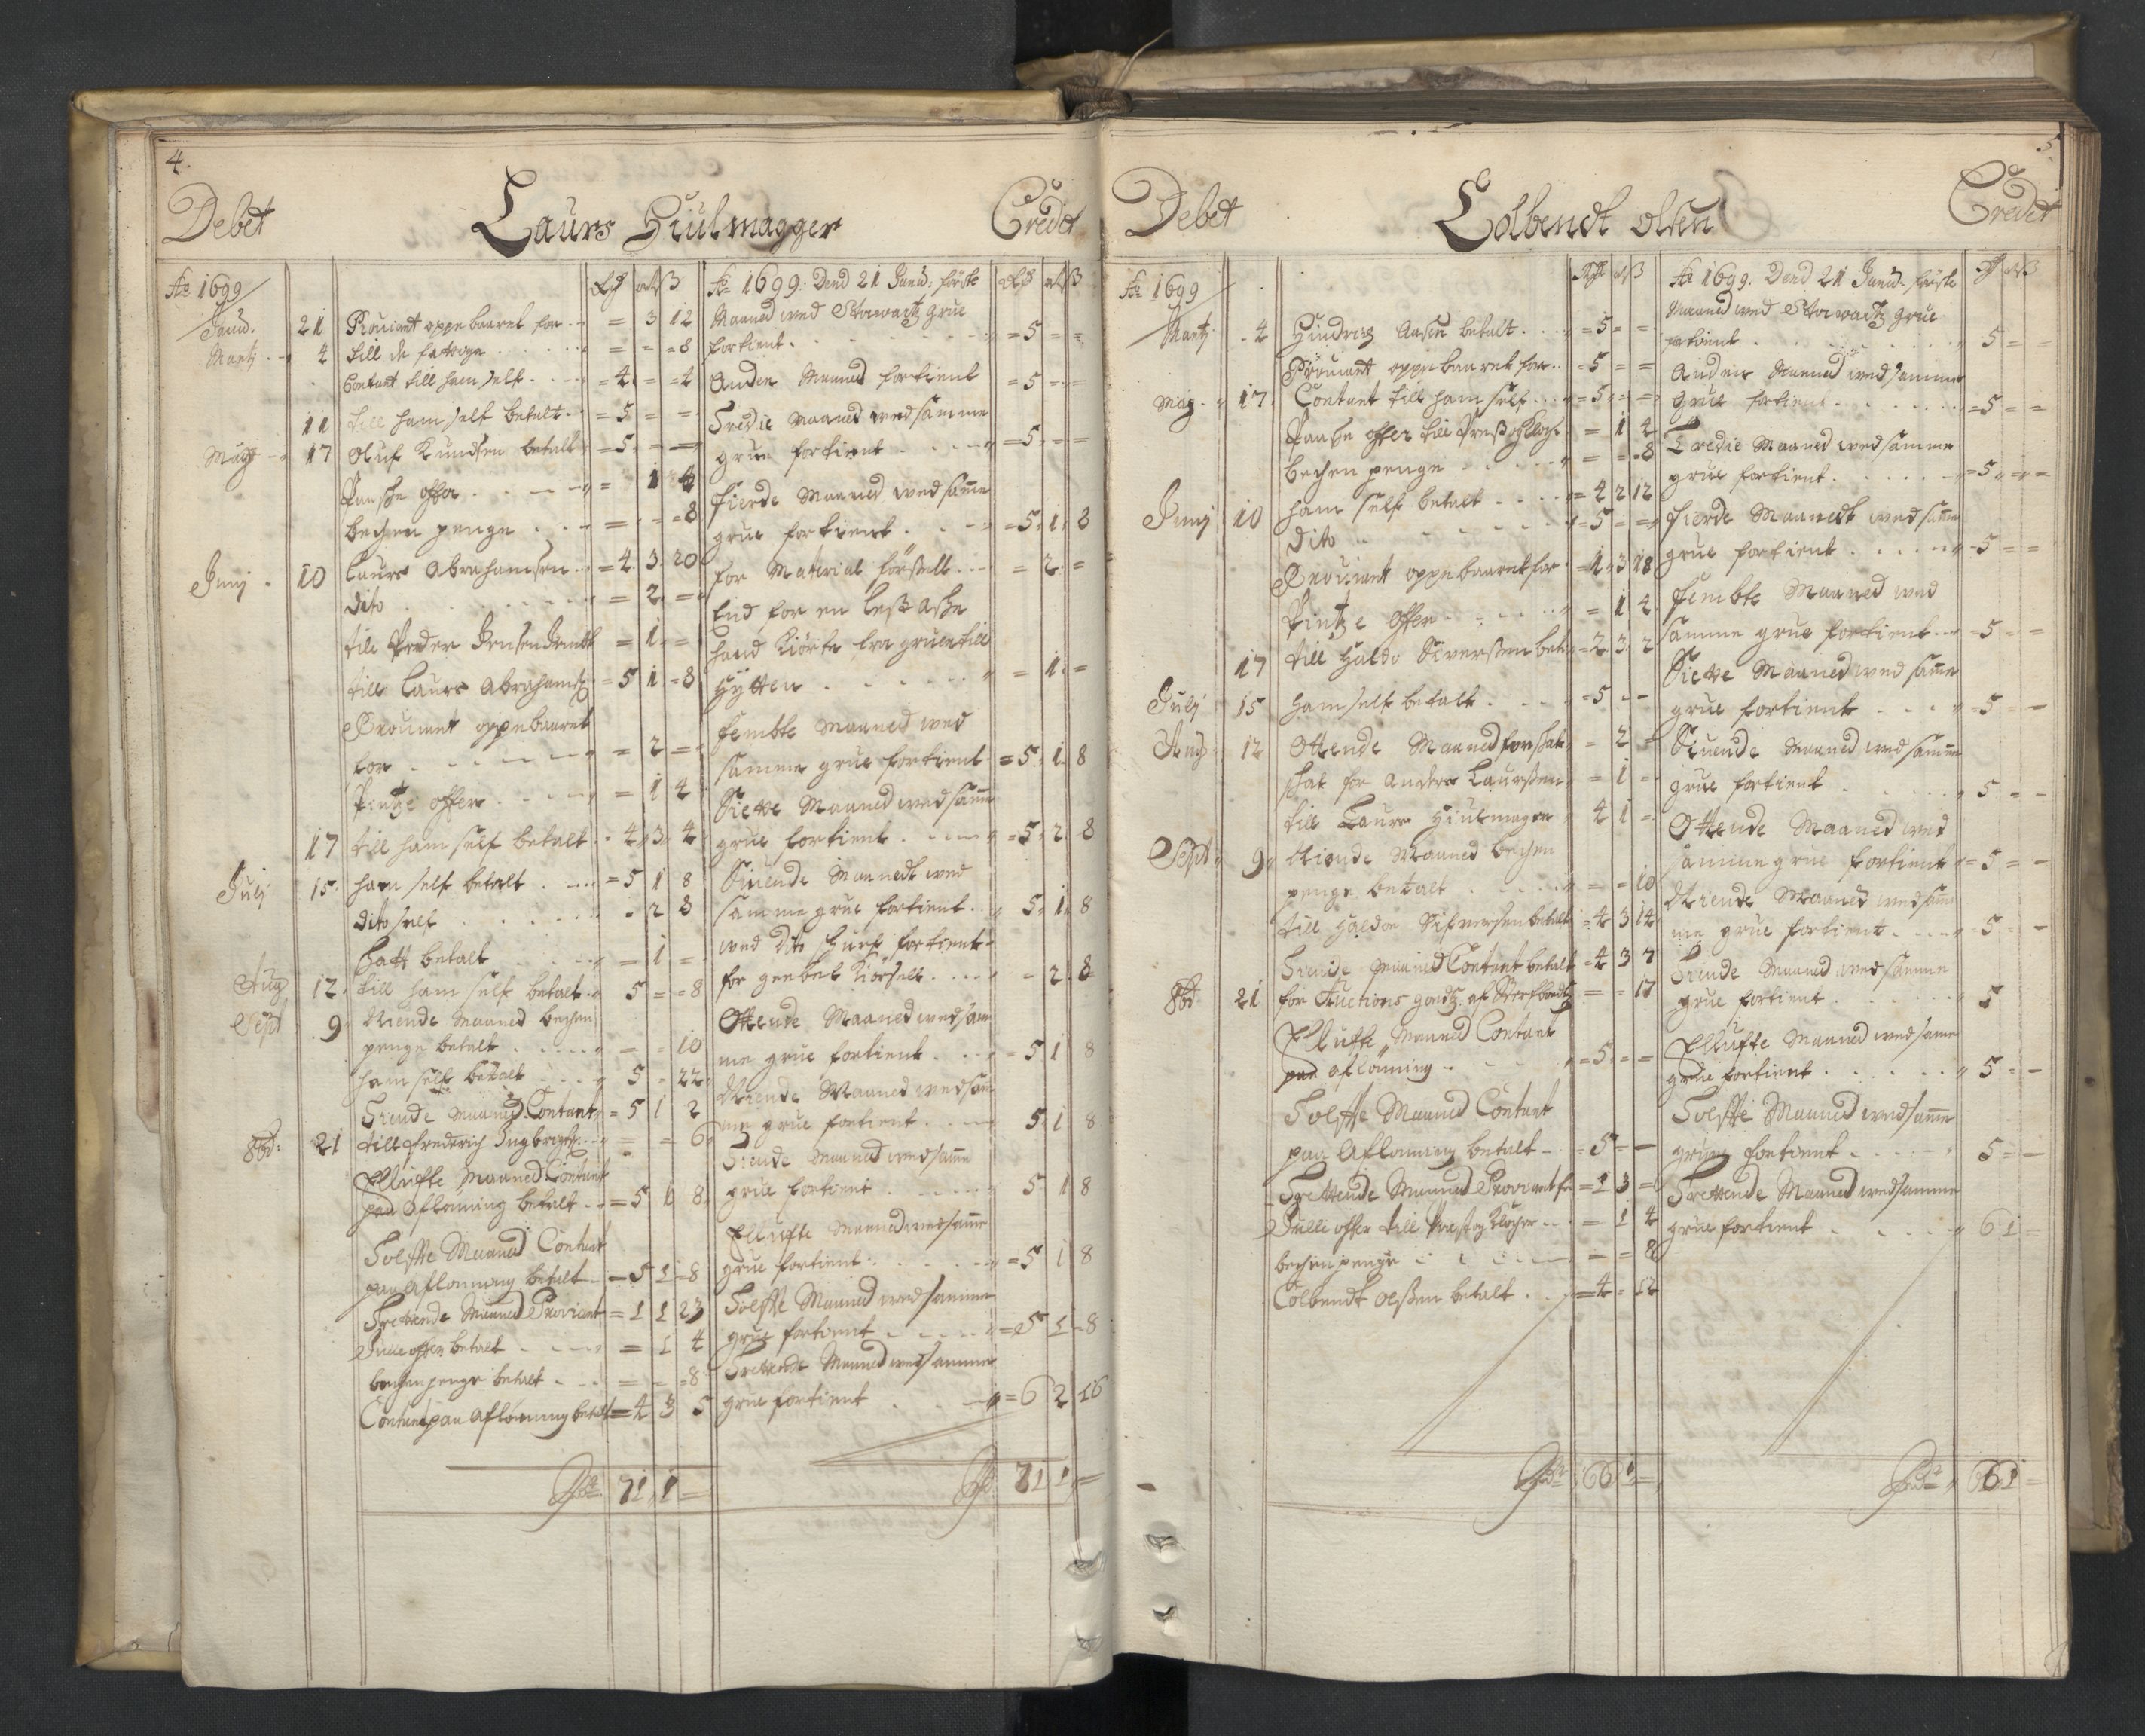 4.
Debet
Laurs Hiulmagger
Credet
Ao 1699
Janū. 21 Prouiant oppebaaret for = 3 12
Martj 4 till de fattige = - =8
Contant till ham self =4 = =4
11 till ham self betalt =5 = =
Maÿ 17 Oluf Knudsen betalt =5 = =
Paasche offer = 1 4
Bechen penge = - =8
Junj 10 Laurs Abrahamsen =4 3 20
Dito = 2 =
till Peder Jensen = 1 =
till Laurs Abrahams 5 1 =8
Prouiant oppebaaret
for = 2 =
Pintze offer = 1 4
17 till ham self betalt 4 3 4
Julj 15 ham self betalt =5 1 8
Dito self - 2 8
Skatt betalt = 1 =
Aug 12 till ham self betalt 5 = =8
Sept 9 Niende Maaned bechen
penge betalt = = 10
ham self betalt 5 - 22
Tiende Maaned Contant =5 1 2
8br: 21 till Frederich Ingbrigts = = 6
Elluffte Maaned Contant
paa Aflonning betalt =5 1 8
Tolffte Maaned Contant
paa Aflonning betalt =5 1 =8
Trettende Maaned Proviant =1 1 23
Juule offer betalt = 1 4
bechenpenge betalt = = =8
Contant paa Aflonning betalt =4 3 5
71 1 =
Ao 1699: Dend 21 Janū: förste
Maaned wed Storwartz grue
fortient =5 = =
Anden Maaned fortient =5 = =
Tredie Maaned wed samme
grue fortient =5 = =
Fierde Maaned wed same
grue fortient =5 1 8
for Material förssell = 2 =
End for en less Asche
hand Kiörte fra gruen till
Hytten = 1 =
Fembte Maaned wed
samme grue fortient =5 1 8
Siette Maaned wed same
grue fortient =5 2 8
Siuende Maanedt wed
samme grue fortient 5 1 8
wed Dito skurf fortient
for geebel Kiörsell - 2 8
Ottende Maaned wed sam
me grue fortient =5 1 8
Niende Maaned wed sam
me grue fortient 5 1 8
Tiende Maaned wed same
grue fortient 5 1 8
Elluffte Maaned wed same
grue fortient =5 1 8
Tolffte Maaned wed samme
grue fortient =5 1 =8
Trettende Maaned wed samme
grue fortient =6 2 16
71 1 =
5
Debet
Colbendt olsen
Credet
Ao 1699
Martj 4 Hindrig Aasen betalt =5 = =
Prouiant oppebaaret for =5 = =
May 17 Contant till ham self =5 = =
Paaske offer till Prest og Klocher = 1 4
Bechen penge = = =8
ham self betalt =4 2 12
Junj 10 Dito =5 = =
Prouiant oppebaaret for =1 3 18
Pintze offer = 1 4
17 till Haldo Siverssen bet =2 3 2
Julj 15 ham self betalt =5 - -
Aug 12 Ottende Maaned forskat = 2 =
skat for Anders Laurssen = 1 =
till Laurs Hiulmager 4 1 =
Sept 9 Niende Maaned bechen
penge betalt = = 10
till Haldor Sifwersen betalt =4 3 14
Tiende Maaned Contant betalt =4 3 7
8br 21 for Auctions goedz af Sterfboedtz = = 17
Elluffte Maaned Contant
paa aflönning =5 = =
Tolffte Maaned Contant
paa Aflonning betalt =5 = -
Trettende Maaned Proviant for =1 3 =
Juelle offer till Prest og Klocher = 1 4
bechen penge = = 8
Colbendt olssen betalt =4 = 12
66 1 =
Ao 1699. Dend 21 Janū: förste
Maaned wed Storwartz grue
fortient 5 = =
Anden Maaned wed samme
Grue fortient =5 = =
Tredie Maaned wed samme
grue fortient =5 = =
Fierde Maanedt wed same
grue fortient =5 = =
Fembte Maaned wed
samme grue fortient =5 = =
Siette Maaned wed same
grue fortient =5 = -
Siuende Maaned wed samme
grue fortient 5 = -
Ottende Maaned wed
samme grue fortient =5 = -
Niende Maaned wed sam
me grue fortient 5 = -
Tiende Maaned wed samme
grue fortient 5
Elluffte Maaned wed same
grue fortient 5 = -
Tolffte Maaned wed same
gruen fortient 5 = -
Trettende Maaned wed samme
grue fortient 6 1 =
66 1 =